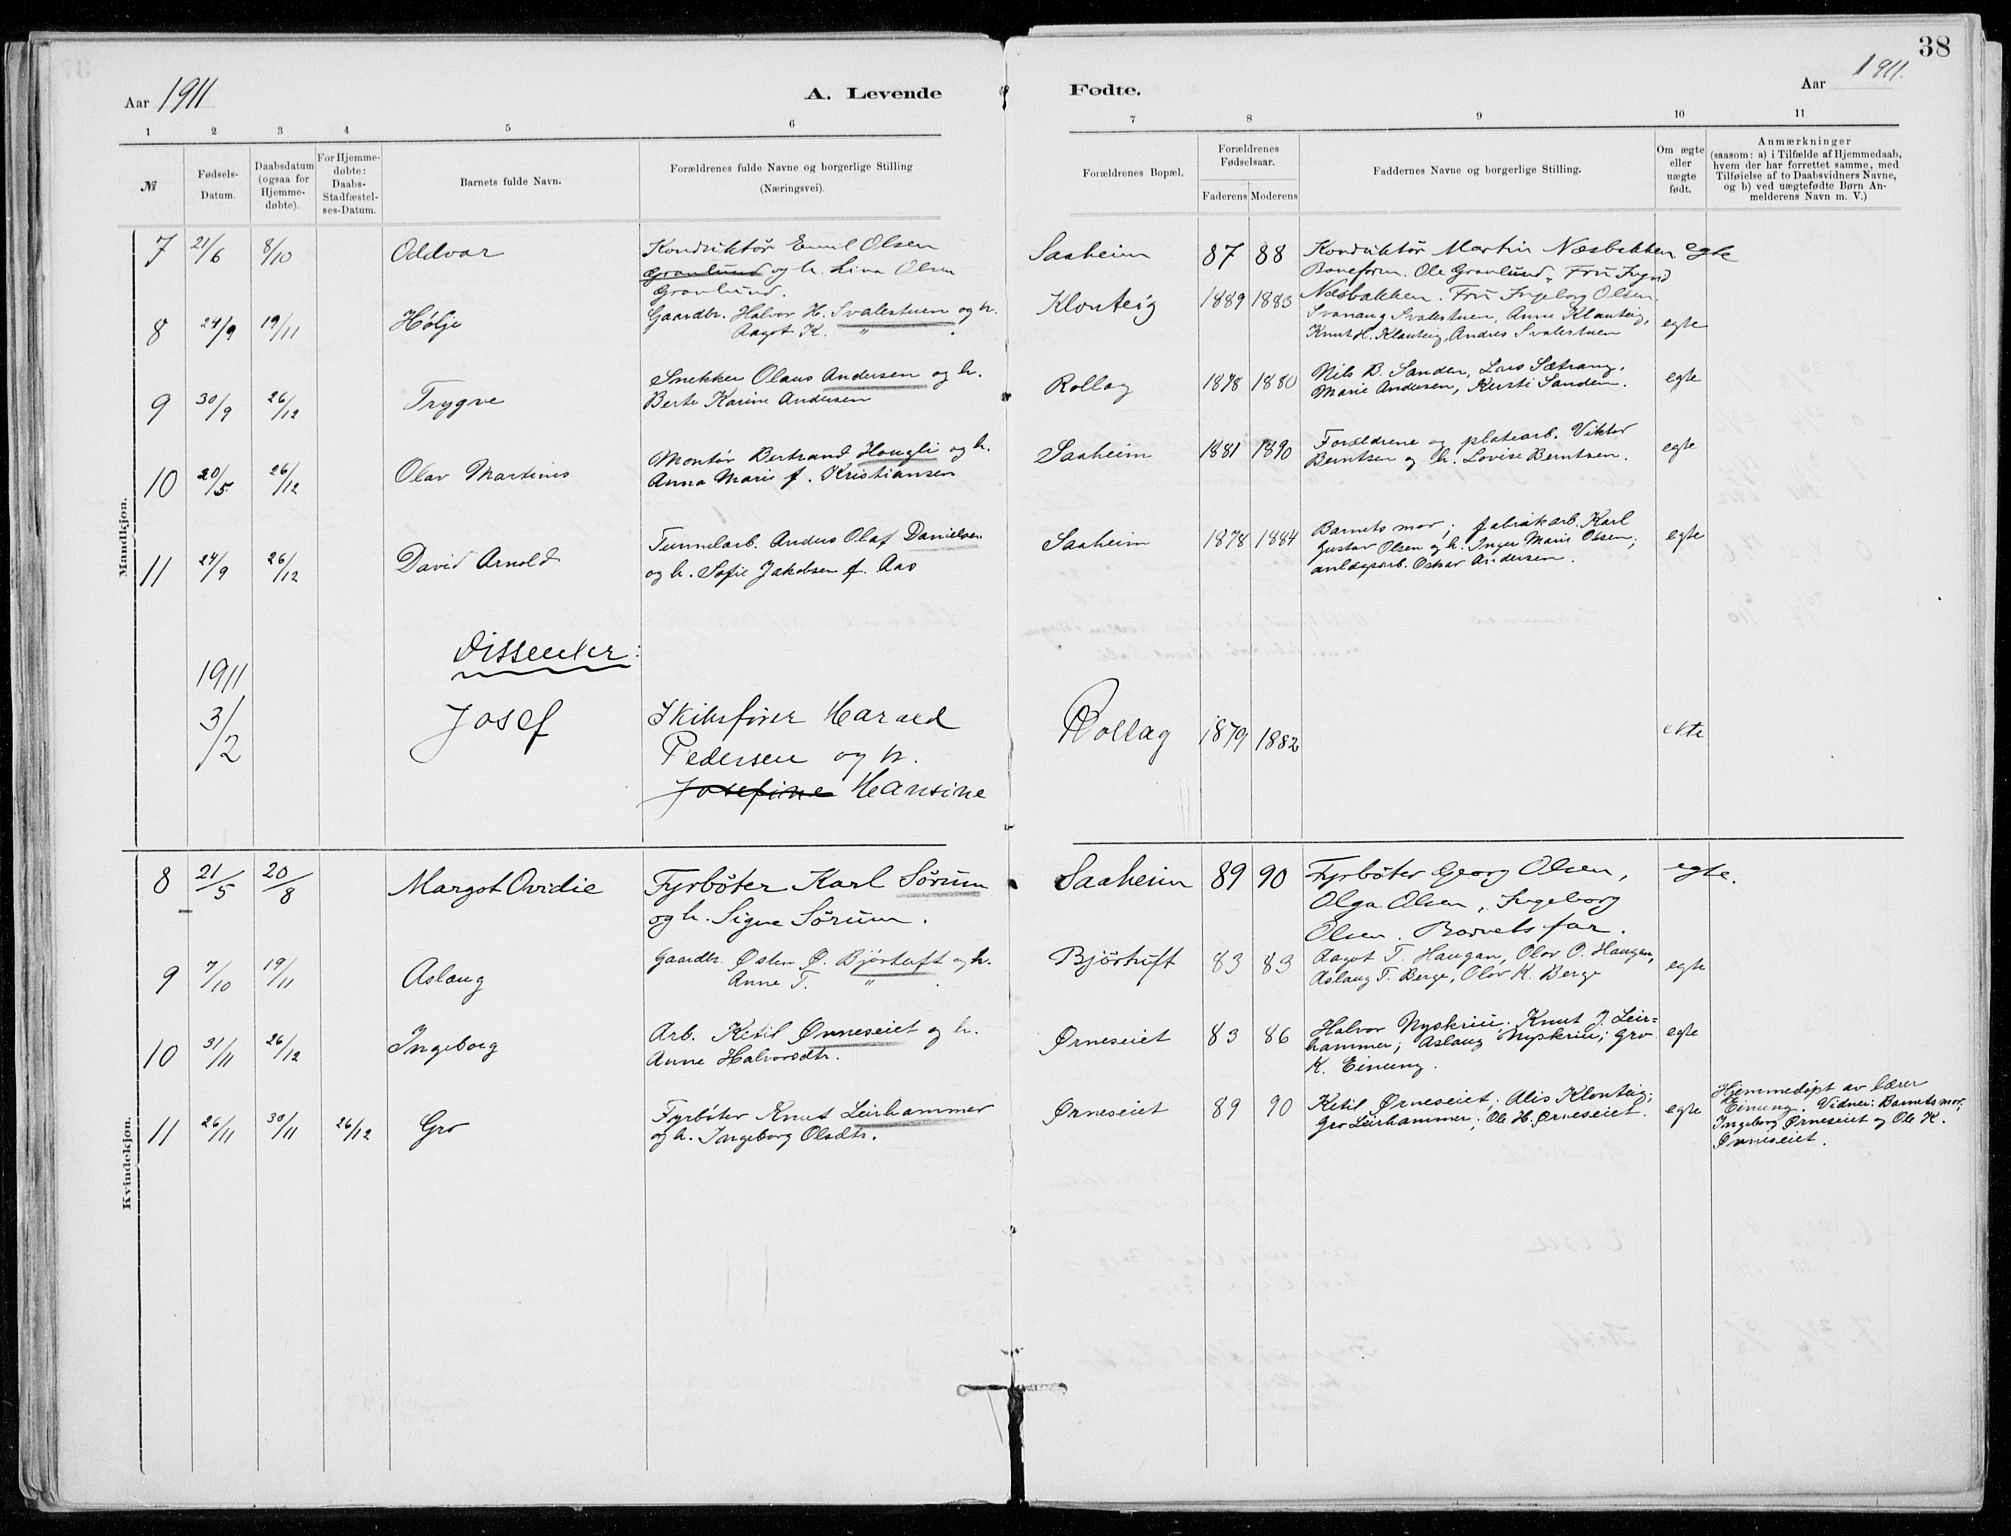 38
Aar 1911 A. Levende Fødte. Aar 1911.
1 2 3 4 5 6 7 8 9 10 11
№
Fødsels-
Datum.
Daabsdatum
(ogsaa for
Hjemme-
døbte).
For Hjemme-
døbte:
Daabs-
Stadfæstel-
ses-Datum.
Barnets fulde Navn.
Forældrenes fulde Navne og borgerlige Stilling
(Næringsvei).
Forældrenes Bopæl.
Forældrenes
Fødselsaar.
Faderens Moderens
Faddernes Navne og borgerlige Stilling.
Om ægte
eller
uægte
født.
Anmærkninger
(saasom: a) i Tilfælde af Hjemmedaab,
hvem der har forrettet samme, med
Tilføielse af to Daabsvidners Navne,
og b) ved uægtefødte Børn An-
melderens Navn m. V.)
Mandkjøn.
7 21/6 8/10 Oddvar
Konduktør Emil Olsen
Grønlund og h. Lina Olsen
Grønlund.
Saaheim 87 88
Konduktør Martin Næsbakken
Ole Grønlund, Fru
Næsbakken. Fru Ingeborg Olsen.
egte
8 24/9 19/11 Hølje
Gaardbr. Halvor H. Svalestuen og h.
Aagot K. "
Klonteig 1889 1883
Svanaug Svalestuen, Anne Klonteig,
Knut H. Klonteig, Andres Svalestuen
egte
9 30/9 26/12 Trygve
Snekker Olaus Andersen og h.
Berte Karine Andersen
Rollag 1878 1880
Nils B. Sanden, Lars Sætrang,
Marie Andersen, Kersti Sanden.
egte
10 20/5 26/12 Olav Martinus
Montør Bertrand Haugli og h.
Anna Marie f. Kristiansen
Saaheim 1881 1890
Forældrene og platearb. Viktor
Berntsen og h. Lovise Berntsen.
egte
11 24/9 26/12 David Arnold
Tunnelarb. Anders Olaf Danielsen
og h. Sofie Jakobsen f. Aas
Saaheim 1878 1884
Barnets mor; fabrikarb. Karl
Gustav Olsen og h. Inger Marie Olsen;
anlægsarb. Oskar Andersen.
egte
Dissenter:
1911
3/2 Josef
Skibsfører Harald
Pedersen og h.
Josefine Hansine
Rollag 1879 1882 ekte
Kvindekjøn.
8 21/5 20/8 Margot Ovidie
Fyrbøter Karl Sørum
og h. Signe Sørum.
Saaheim 89 90
Fyrbøter Georg Olsen,
Olga Olsen, Ingeborg
Olsen. Barnets far.
egte.
9 7/10 19/11 Aslaug
Gaardbr. Østen Ø. Bjørtuft og h.
Anne T. "
Bjørtuft 83 83
Aagot T. Haugan, Olav O. Haugan,
Aslaug T. Berge, Olav K. Berge
egte
10 31/11 26/12 Ingeborg
Arb. Ketil Ørneseiet og h.
Anne Halvorsdtr.
Ørneseiet 83 86
Halvor Nyskriu; Knut J. Leir=
hammer; Aslaug Nyskriu; Gro
K. Einung.
egte
11 26/11 30/11 26/12 Gro
Fyrbøter Knut Leirhammer
og h. Ingeborg Olsdtr.
Ørneseiet 89 90
Ketil Ørneseiet; Alis Klonteig;
Gro Leirhammer; Ole H. Ørneseiet.
egte
Hjemmedøpt av lærer
Einung. Vidner: Barnets mor,
Ingeborg Ørneseiet og Ole K.
Ørneseiet.